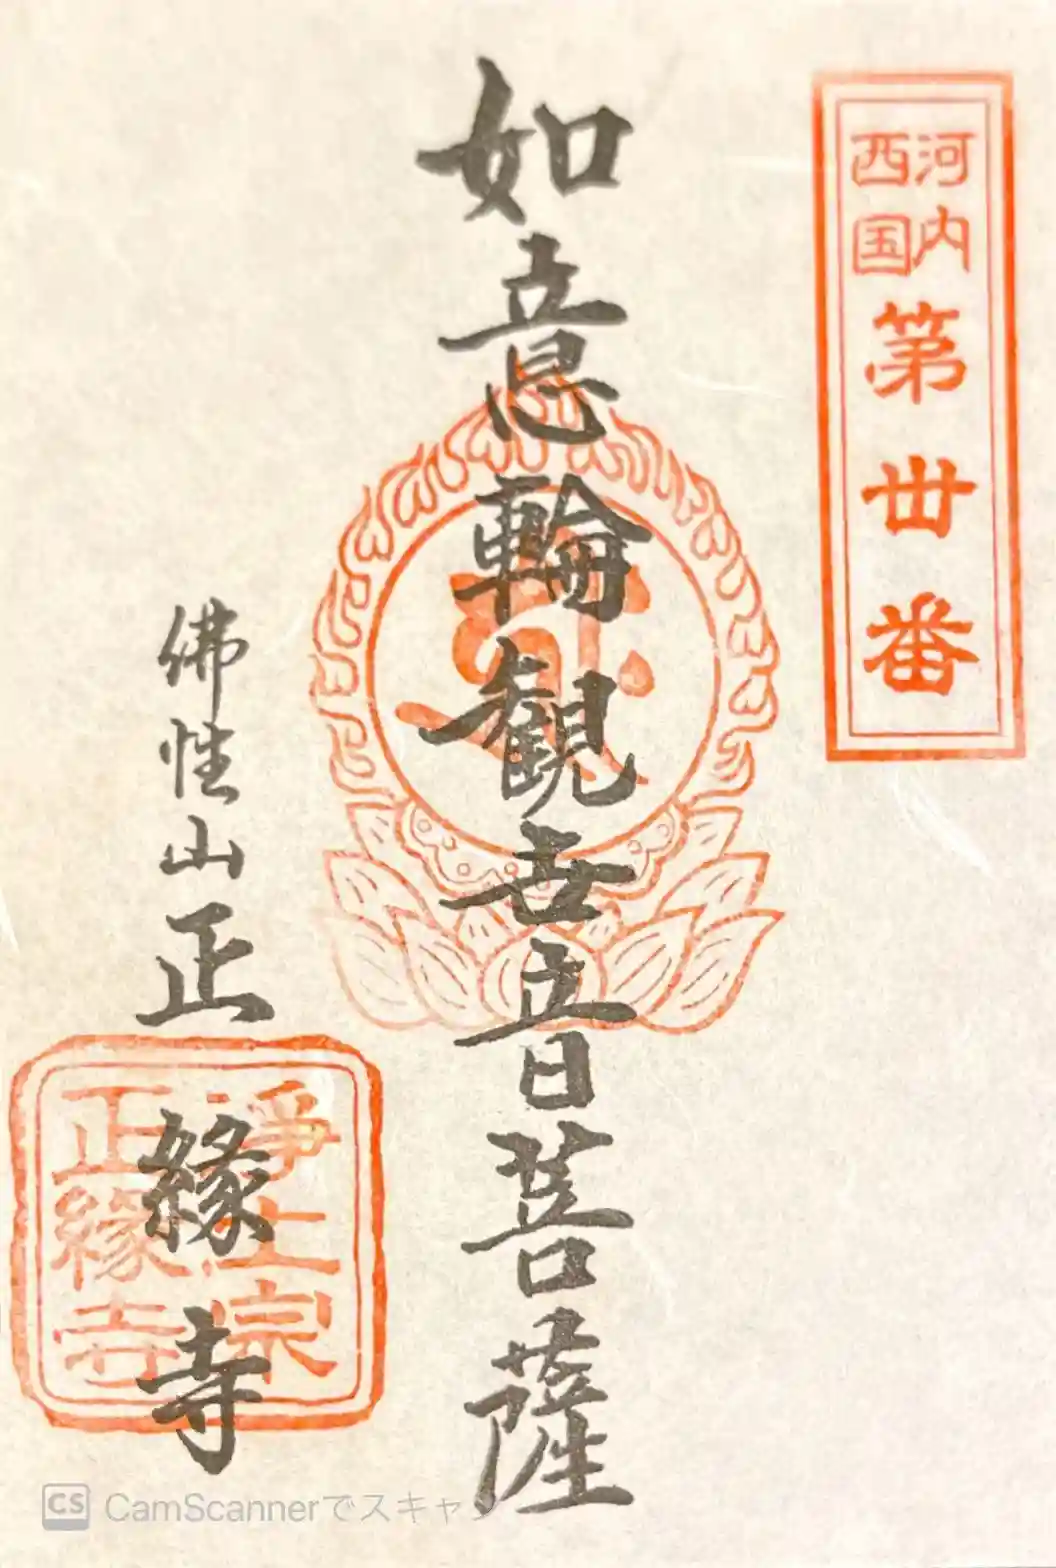 河内
西国
第卅番
如意輪観世音菩薩
佛性山正縁寺
浄土宗
正縁寺
CS CamScannerでスキャ